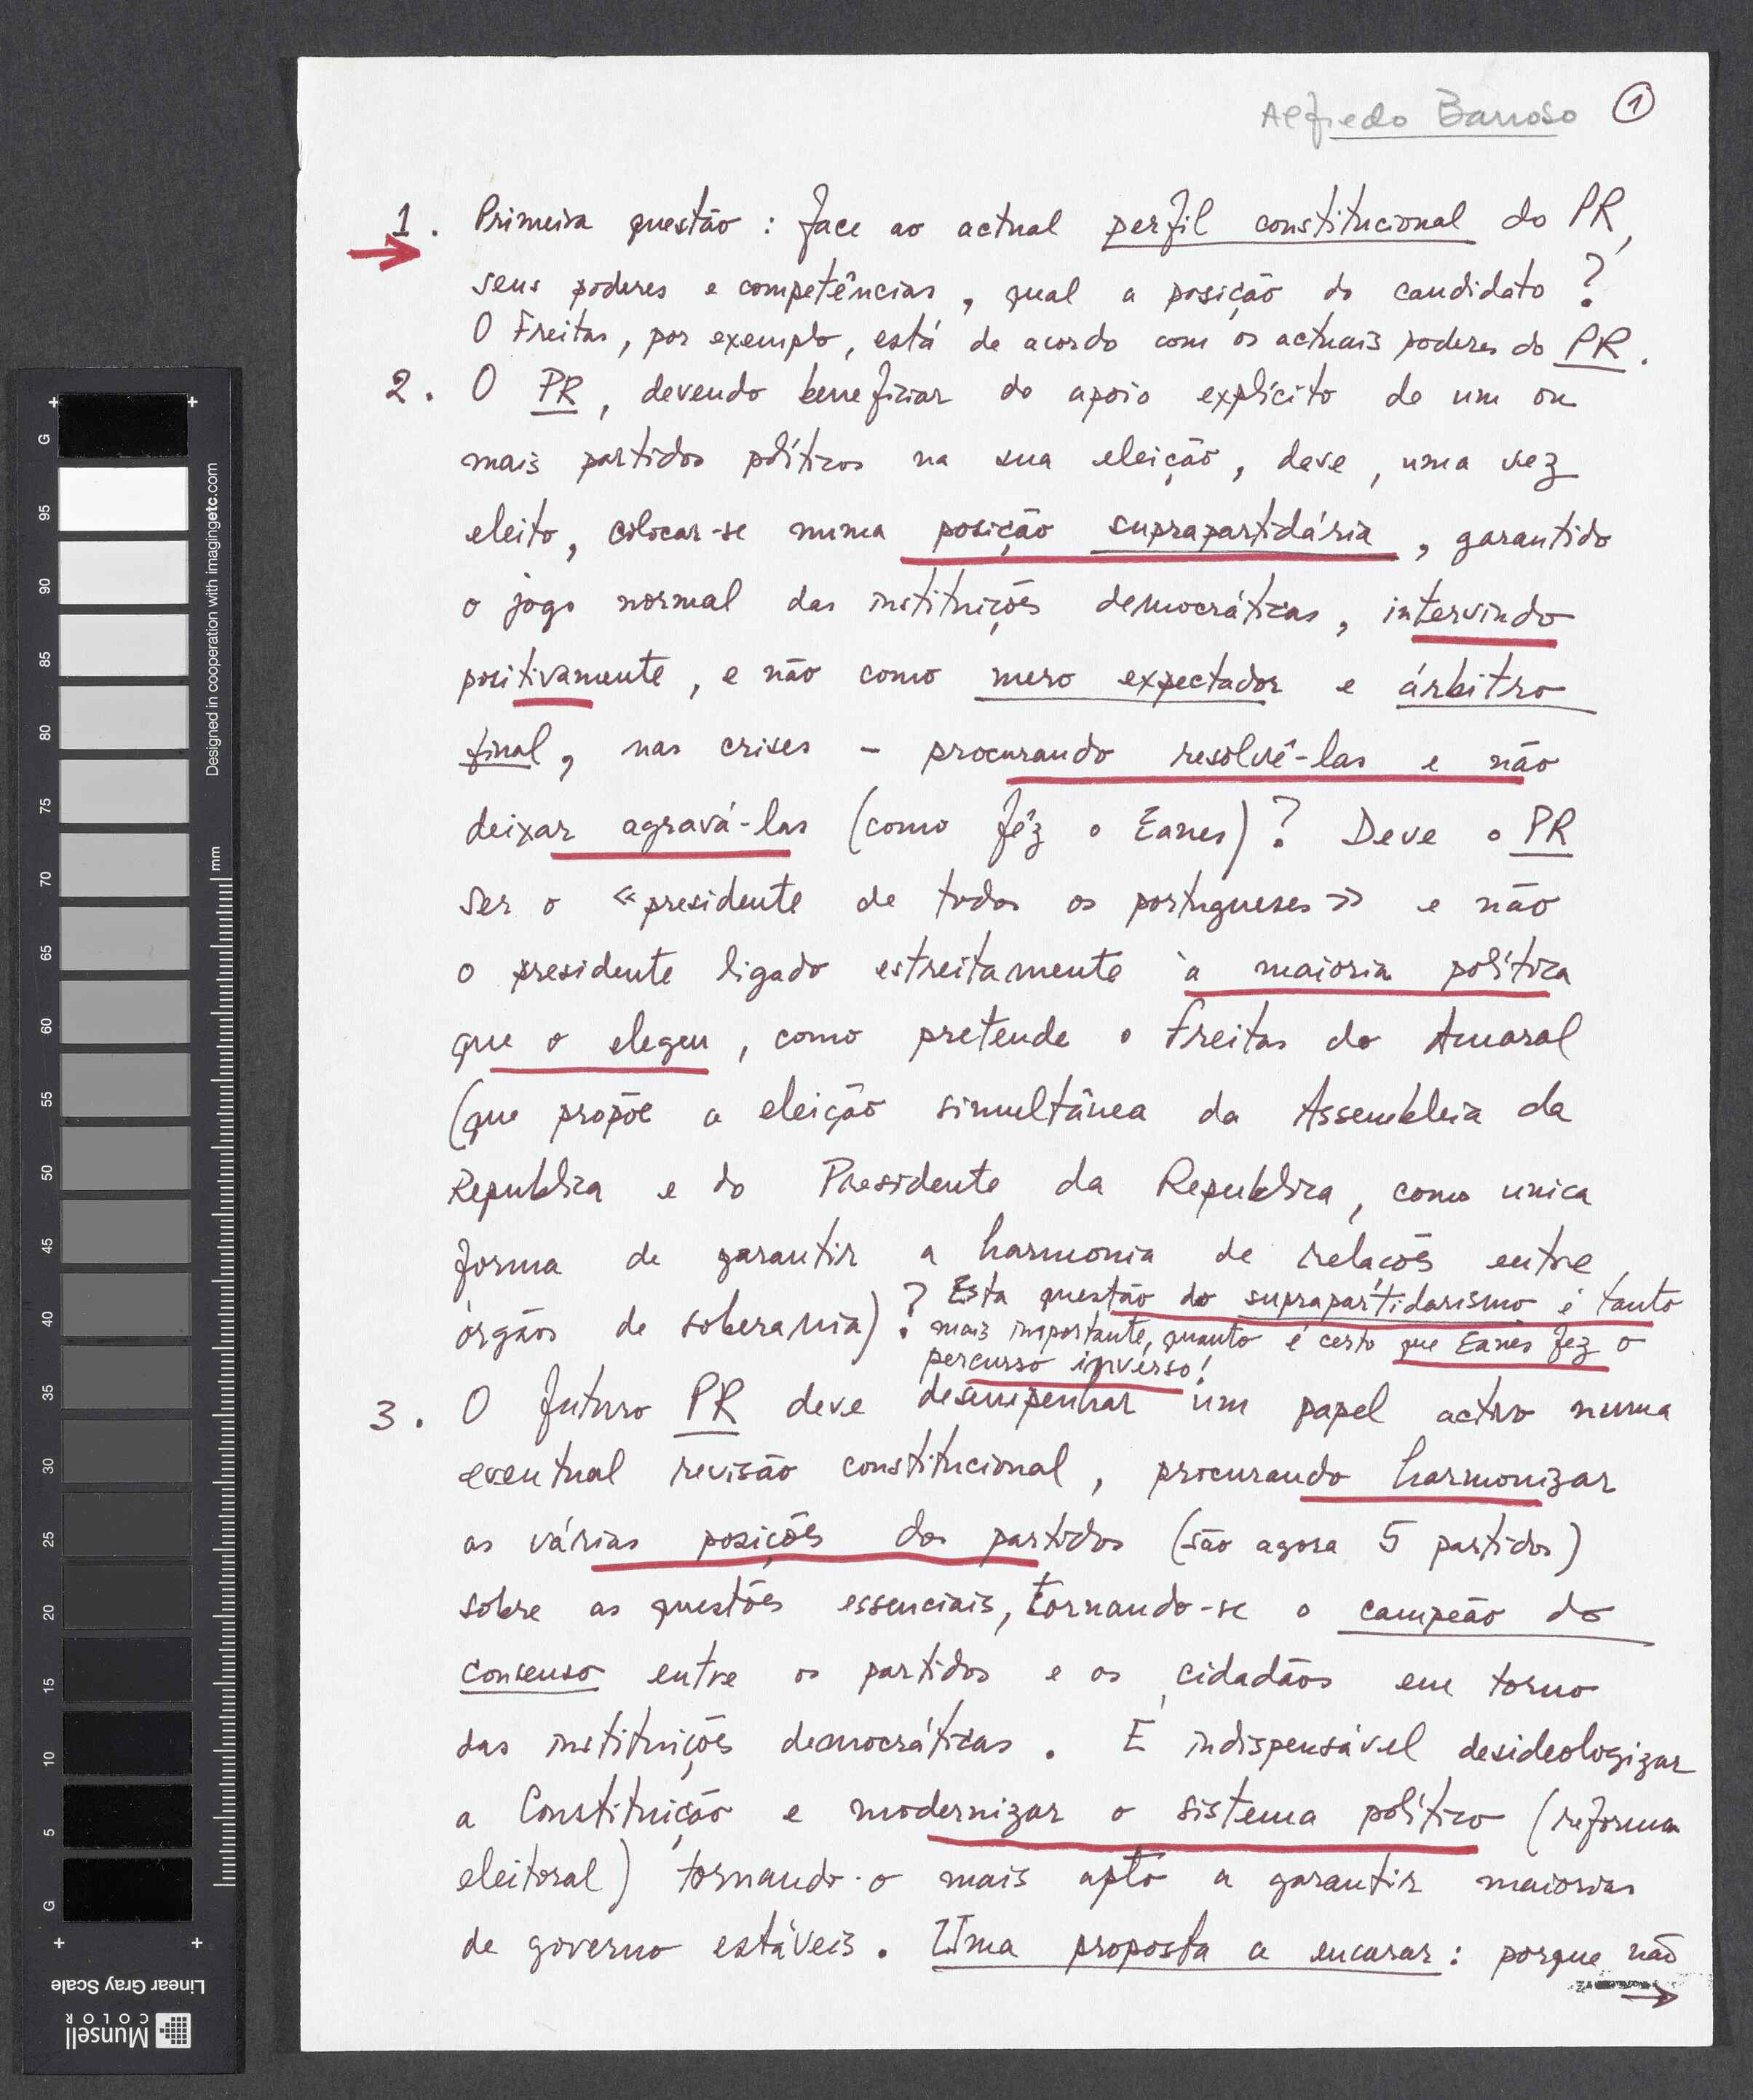 Alfredo Barroso 1
1. Primeira questão : face ao actual perfil constitucional do PR,
seus poderes e competências, qual a posição do candidato ?
O Freitas, por exemplo, está de acordo com os actuais poderes do PR.
2. O PR, devendo beneficiar do apoio explícito de um ou
mais partidos políticos na sua eleição, deve, uma vez
eleito, colocar-se numa posição suprapartidária, garantido
o jogo normal das instituições democráticas, intervindo
positivamente, e não como mero expectador e árbitro
final, nas crises – procurando resolvê-las e não
deixar agravá-las (como fêz o Eanes) ? Deve o PR
ser o «presidente de todos os portugueses» e não
o presidente ligado estreitamente à maioria política
que o elegeu, como pretende o Freitas do Amaral
(que propõe a eleição simultânea da Assembleia da
Republica e do Presidente da Republica, como unica
forma de garantir a harmonia de relacões entre
órgãos de soberania) ? Esta questão do suprapartidarismo é tanto
mais importante, quanto é certo que Eanes fez o
percurso inverso!
3. O futuro PR deve desempenhar um papel activo numa
eventual revisão constitucional, procurando harmonizar
as várias posições dos partidos (são agora 5 partidos)
sobre as questões essenciais, tornando-se o campeão do
consenso entre os partidos e os cidadãos em torno
das instituições democráticas. É indispensável desideologizar
a Constituição e modernizar o sistema político (reforma
eleitoral) tornando-o mais apto a garantir maiorias
de governo estáveis. Uma proposta a encarar : porque não
→
G 95 90 85 80 75 70 65 60 55 50 45 40 35 30 25 20 15 10 5 G
mm
Designed in cooperation with imagingetc.com
Linear Gray Scale
Munsell
COLOR